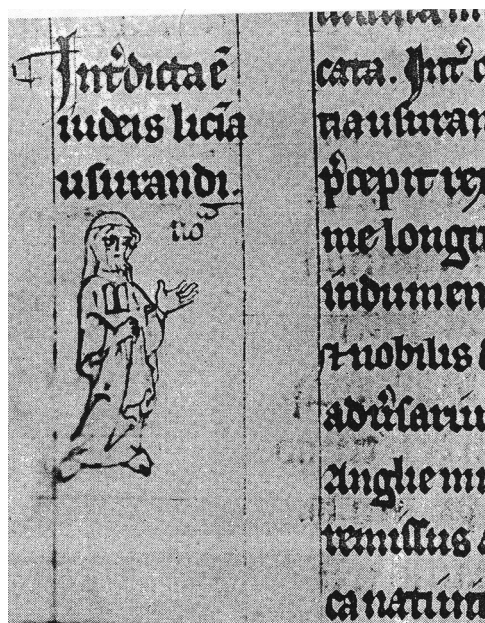 Int'dicta ē
iudeis licīa
usurandi.
no
cata. Int' c
tia usuran
p'cepit re
me longu
indumen
nobilis
adu'sariu
Anglie mi
remissus
ca natiui